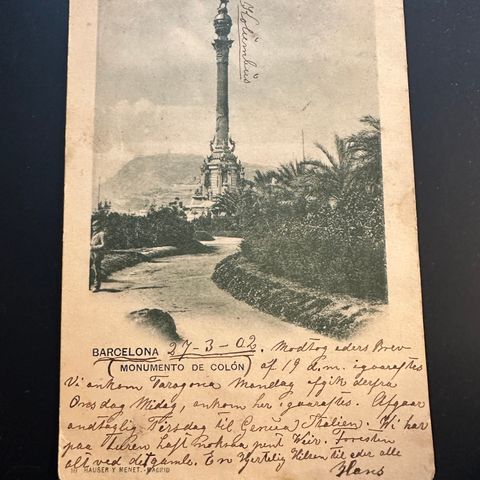 Kolumbus
BARCELONA 27-3-02. Modtog eders Brev
MONUMENTO DE COLÓN af 19 d.m. igaaraftes
Vi ankom Taragona Mandag afgik derfra
Onsdag Midag, ankom her igaaraftes. Afgaar
andtaglig Tirsdag til Genua, Italien. Vi har
paa Turen haft noksha pent Veir. Foresten
alt ved det gamle. En Hertelig Hilsen til eder alle
HAUSER Y MENET.-MADRID Hans